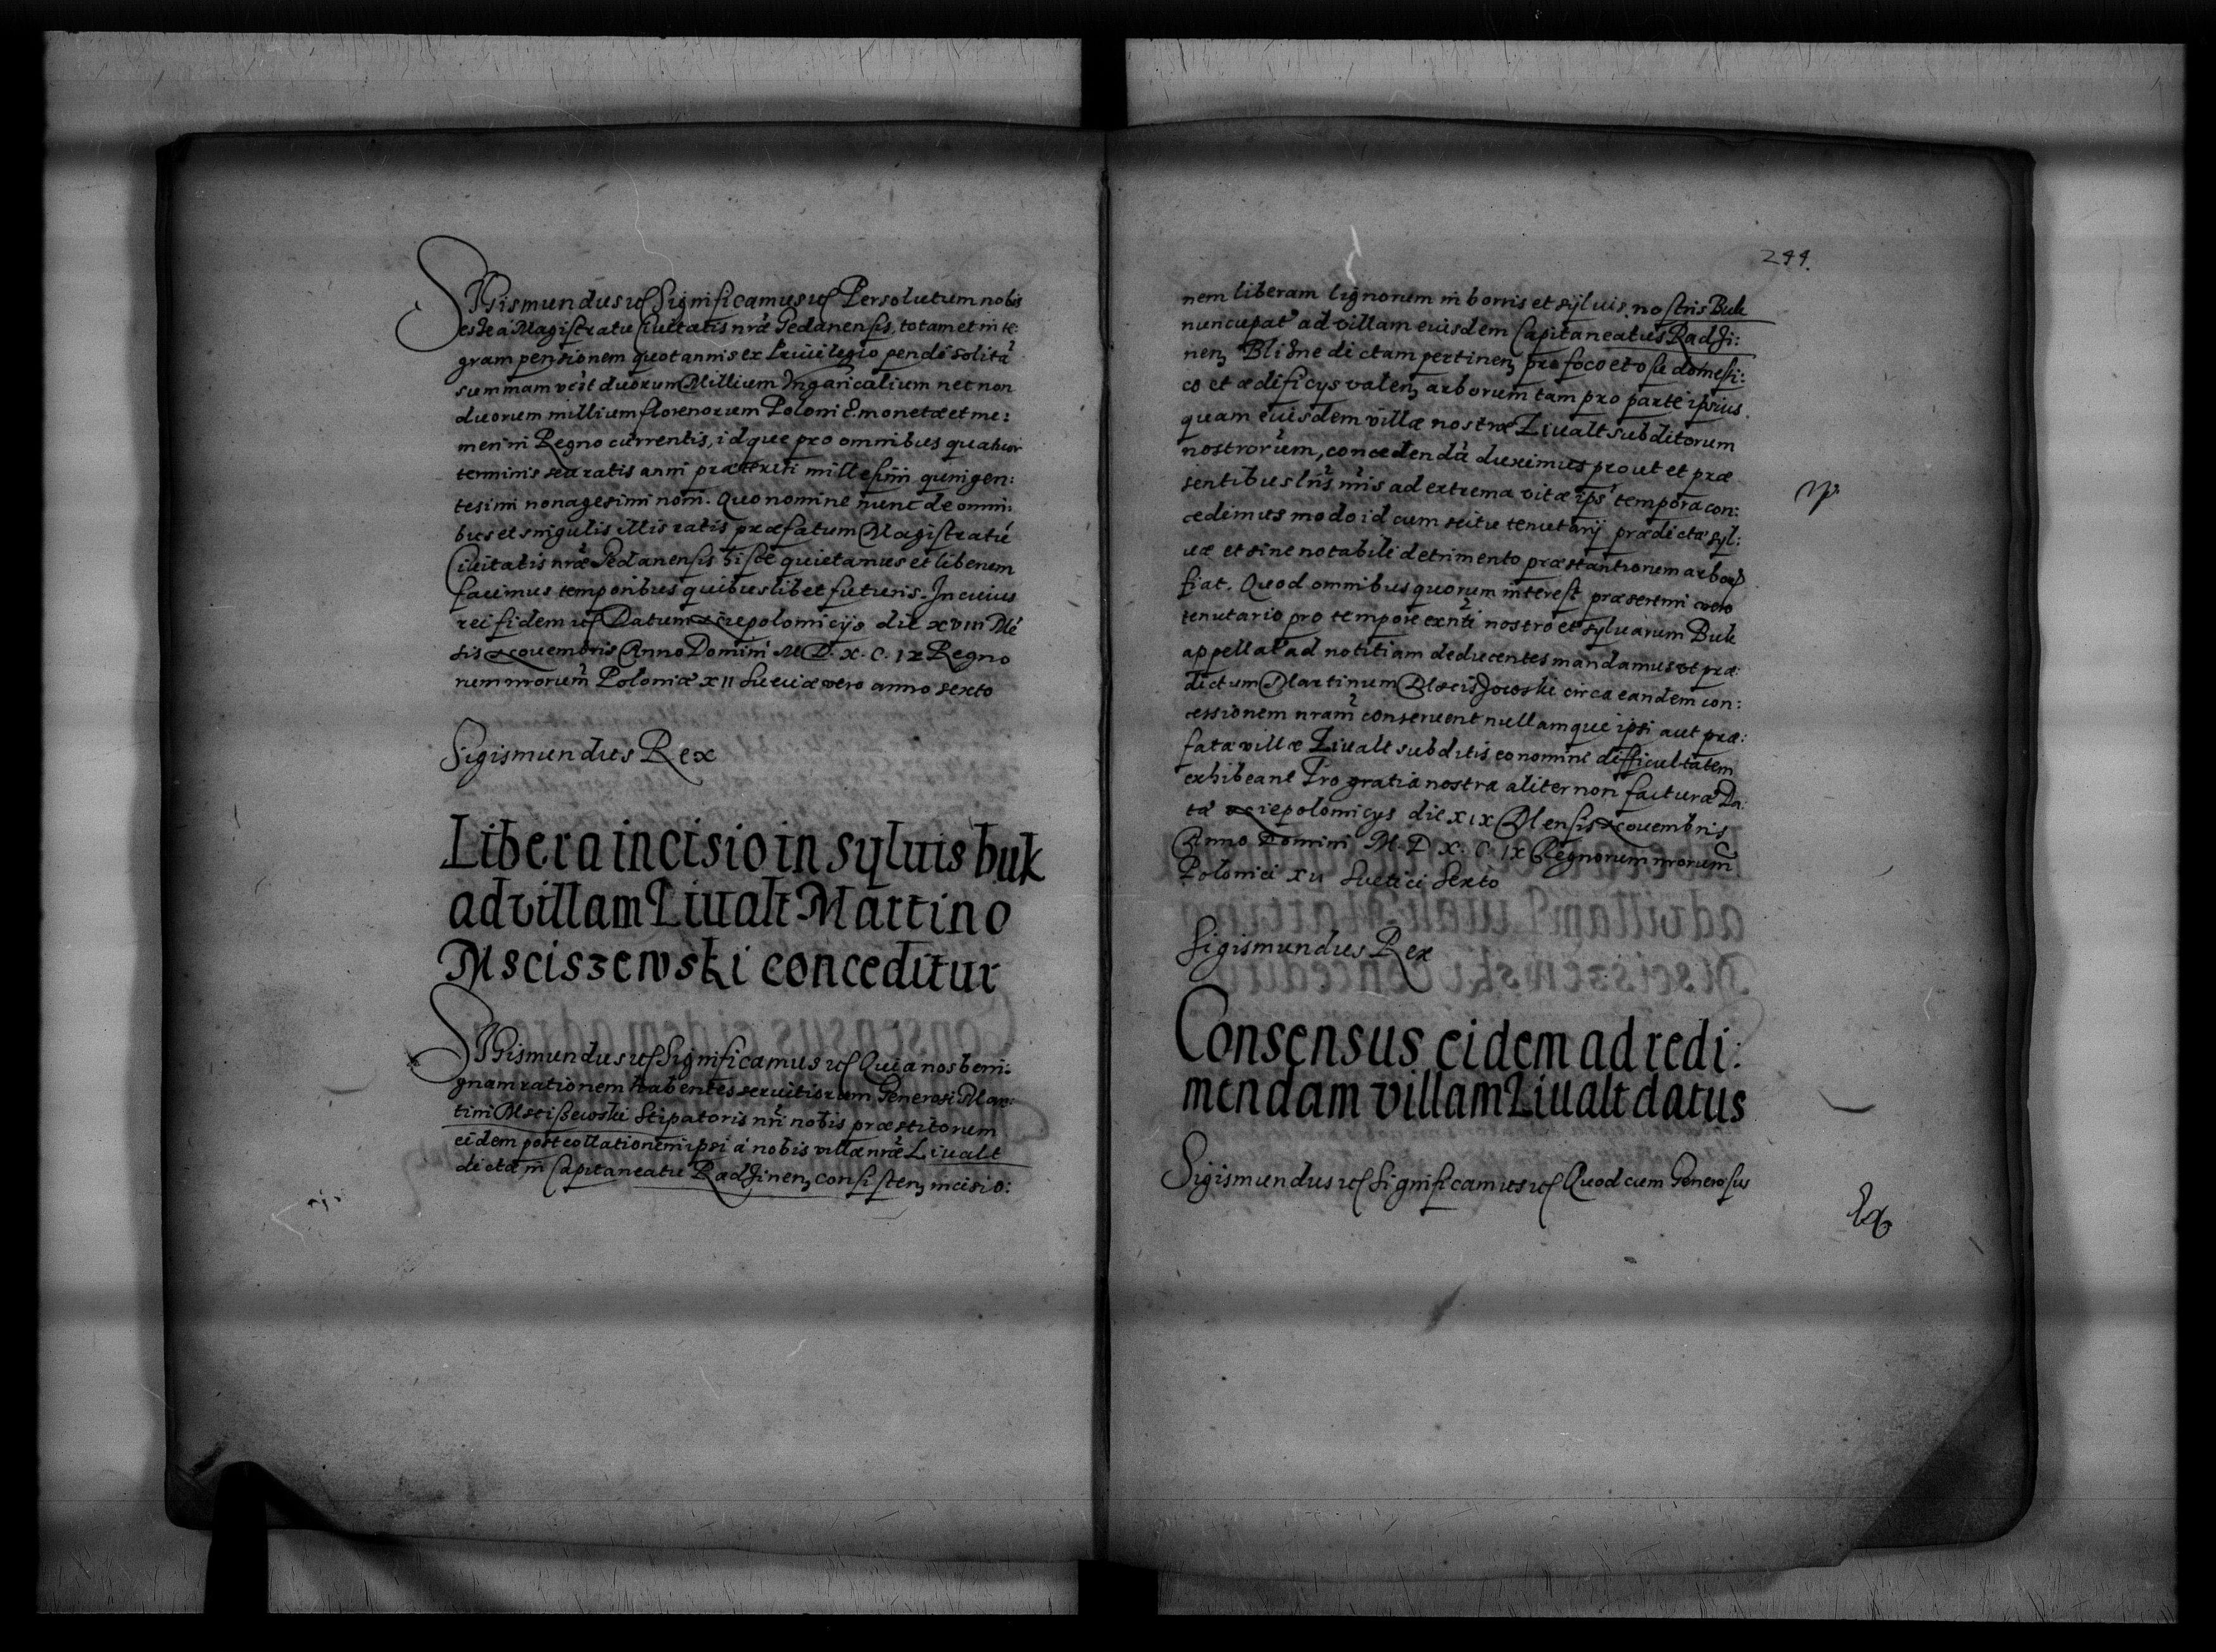 SIGismundus etc Significamus etc Persolutum nobis
esse a Magistratu Civitatis nrae Gedanensis, totam et inte
gram pensionem quotannis ex Privilegio pendi solitã
summam videlt duorum Millium Ungaricalium nec non
duorum millium florenorum Poloni &. monetae et me:
meri in Regno currentis, idque pro omnibus quatuor
terminis seu ratis anni praeteriti millesimi quingen:
tesimi nonagesimi noni. Quo nomine nunc de omni:
bus et singulis illis ratis praefatum Magistratũ
Civitatis nrae Gedanensis hisce quietamus et liberum
facimus temporibus quibuslibet futuris. In cuius
rei fidem etc Datum Niepolomicijs die XVIII Mẽ
sis Novembris Anno Domini M.D.X.C.IX Regno
rum nrorum Poloniae XII Sueciae vero anno sexto
Sigismundus Rex
Libera incisio in sylvis buk
ad villam Livalt Martino
Msciszewski conceditur
SIGismundus etc Significamus etc Quia nos beni:
gnam rationem habentes servitiorum Generosi Mar:
tini Mscißewski Stipatoris nri nobis praestitorum
eidem post collationem ipsi a nobis villae nrae Livalt
dictae in Capitaneatu Radzinen consisten incisio:
244.
nem liberam lignorum in borris et sylvis nostris Buk
nuncupat ad villam eiusdem Capitaneatus Radzi:
nen Blisne dictam pertinen pro foco et usu domesti:
co et aedificys valen arborum tam pro parte ipsius
quam eiusdem villae nostrae Livalt subditorum
nostrorum, concedendã duximus prout et prae
sentibus lris nris ad extrema vitae ips tempora con:
cedimus modo id cum scitu tenutarij praedictae syl:
vae et sine notabili detrimento praestantiorum arbor
fiat. Quod omnibus quorum interest praesertim vero
tenutario pro tempore exnti nostro et sylvarum Buk
appellat ad notitiam deducentes mandamus ut prae:
dictum Martinum Mscißowski circa eandem con:
cessionem nram conservent nullamque ipsi aut prae:
fatae villae Livalt subditis eo nomine difficultatem
exhibeant Pro gratia nostra aliter non facturi Da:
tae Niepolomicys die XIX Mensis Novembris
Anno Domini M.D.X.C.IX Regnorum nrorum
Polonici XII Suetici Sexto
Sigismundus Rex
Consensus eidem ad redi:
mendam villam Livalt datus
Sigismundus etc Significamus etc Quod cum Generosus